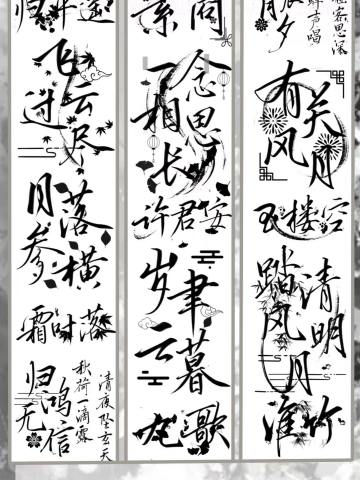 飞云过尽
月落参横
霜时落
归鸿无信
秋荷一滴露
清夜坠玄天
一念相思长
许君安
岁聿云暮
九歌
客思深
蝉声唱
月夕
有关风月
玉楼空
清明踏风月
淮竹